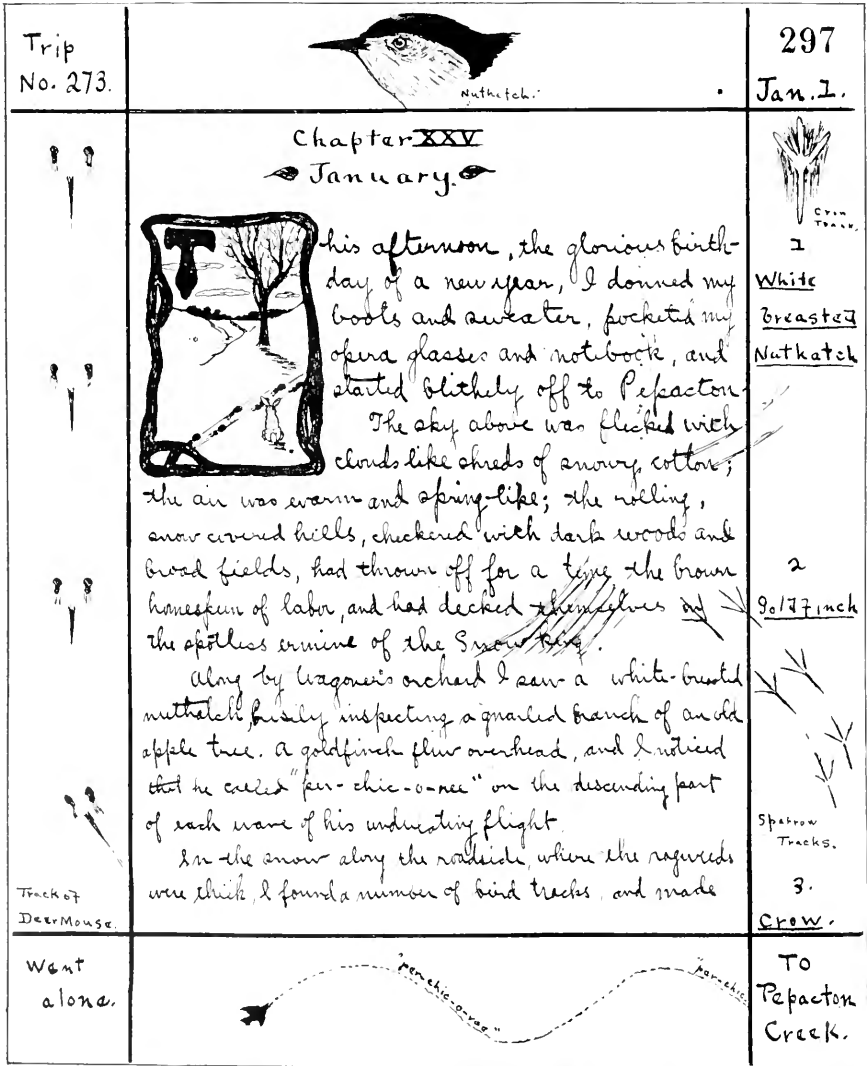 Trip
No. 273.
Nuthatch.
297
Jan. 1.
Chapter XXV
January.
This afternoon, the glorious birth-
day of a new year, I donned my
boots and sweater, pocketed my
opera glasses and notebook, and
started blithely off to Pepacton.
The sky above was flecked with
clouds like shreds of snowy cotton;
the air was warm and spring-like; the rolling,
snow covered hills, checkered with dark woods and
broad fields, had thrown off for a time the brown
homespun of labor, and had decked themselves in
the spotless ermine of the Snow King.
Along by Wagoner's orchard I saw a white-breasted
nuthatch, busily inspecting a gnarled branch of an old
apple tree. A goldfinch flew overhead, and I noticed
that he called "per-chic-o-ree" on the descending part
of each wave of his undulating flight.
In the snow along the roadside, where the ragweeds
were thick, I found a number of bird tracks, and made
Crow
Track.
1
White
breasted
Nuthatch
2
Goldfinch
Sparrow
Tracks.
3.
Crow.
Track of
Deer Mouse.
Went
alone.
"per-chic-o-ree"
"per-chic-
To
Pepacton
Creek.